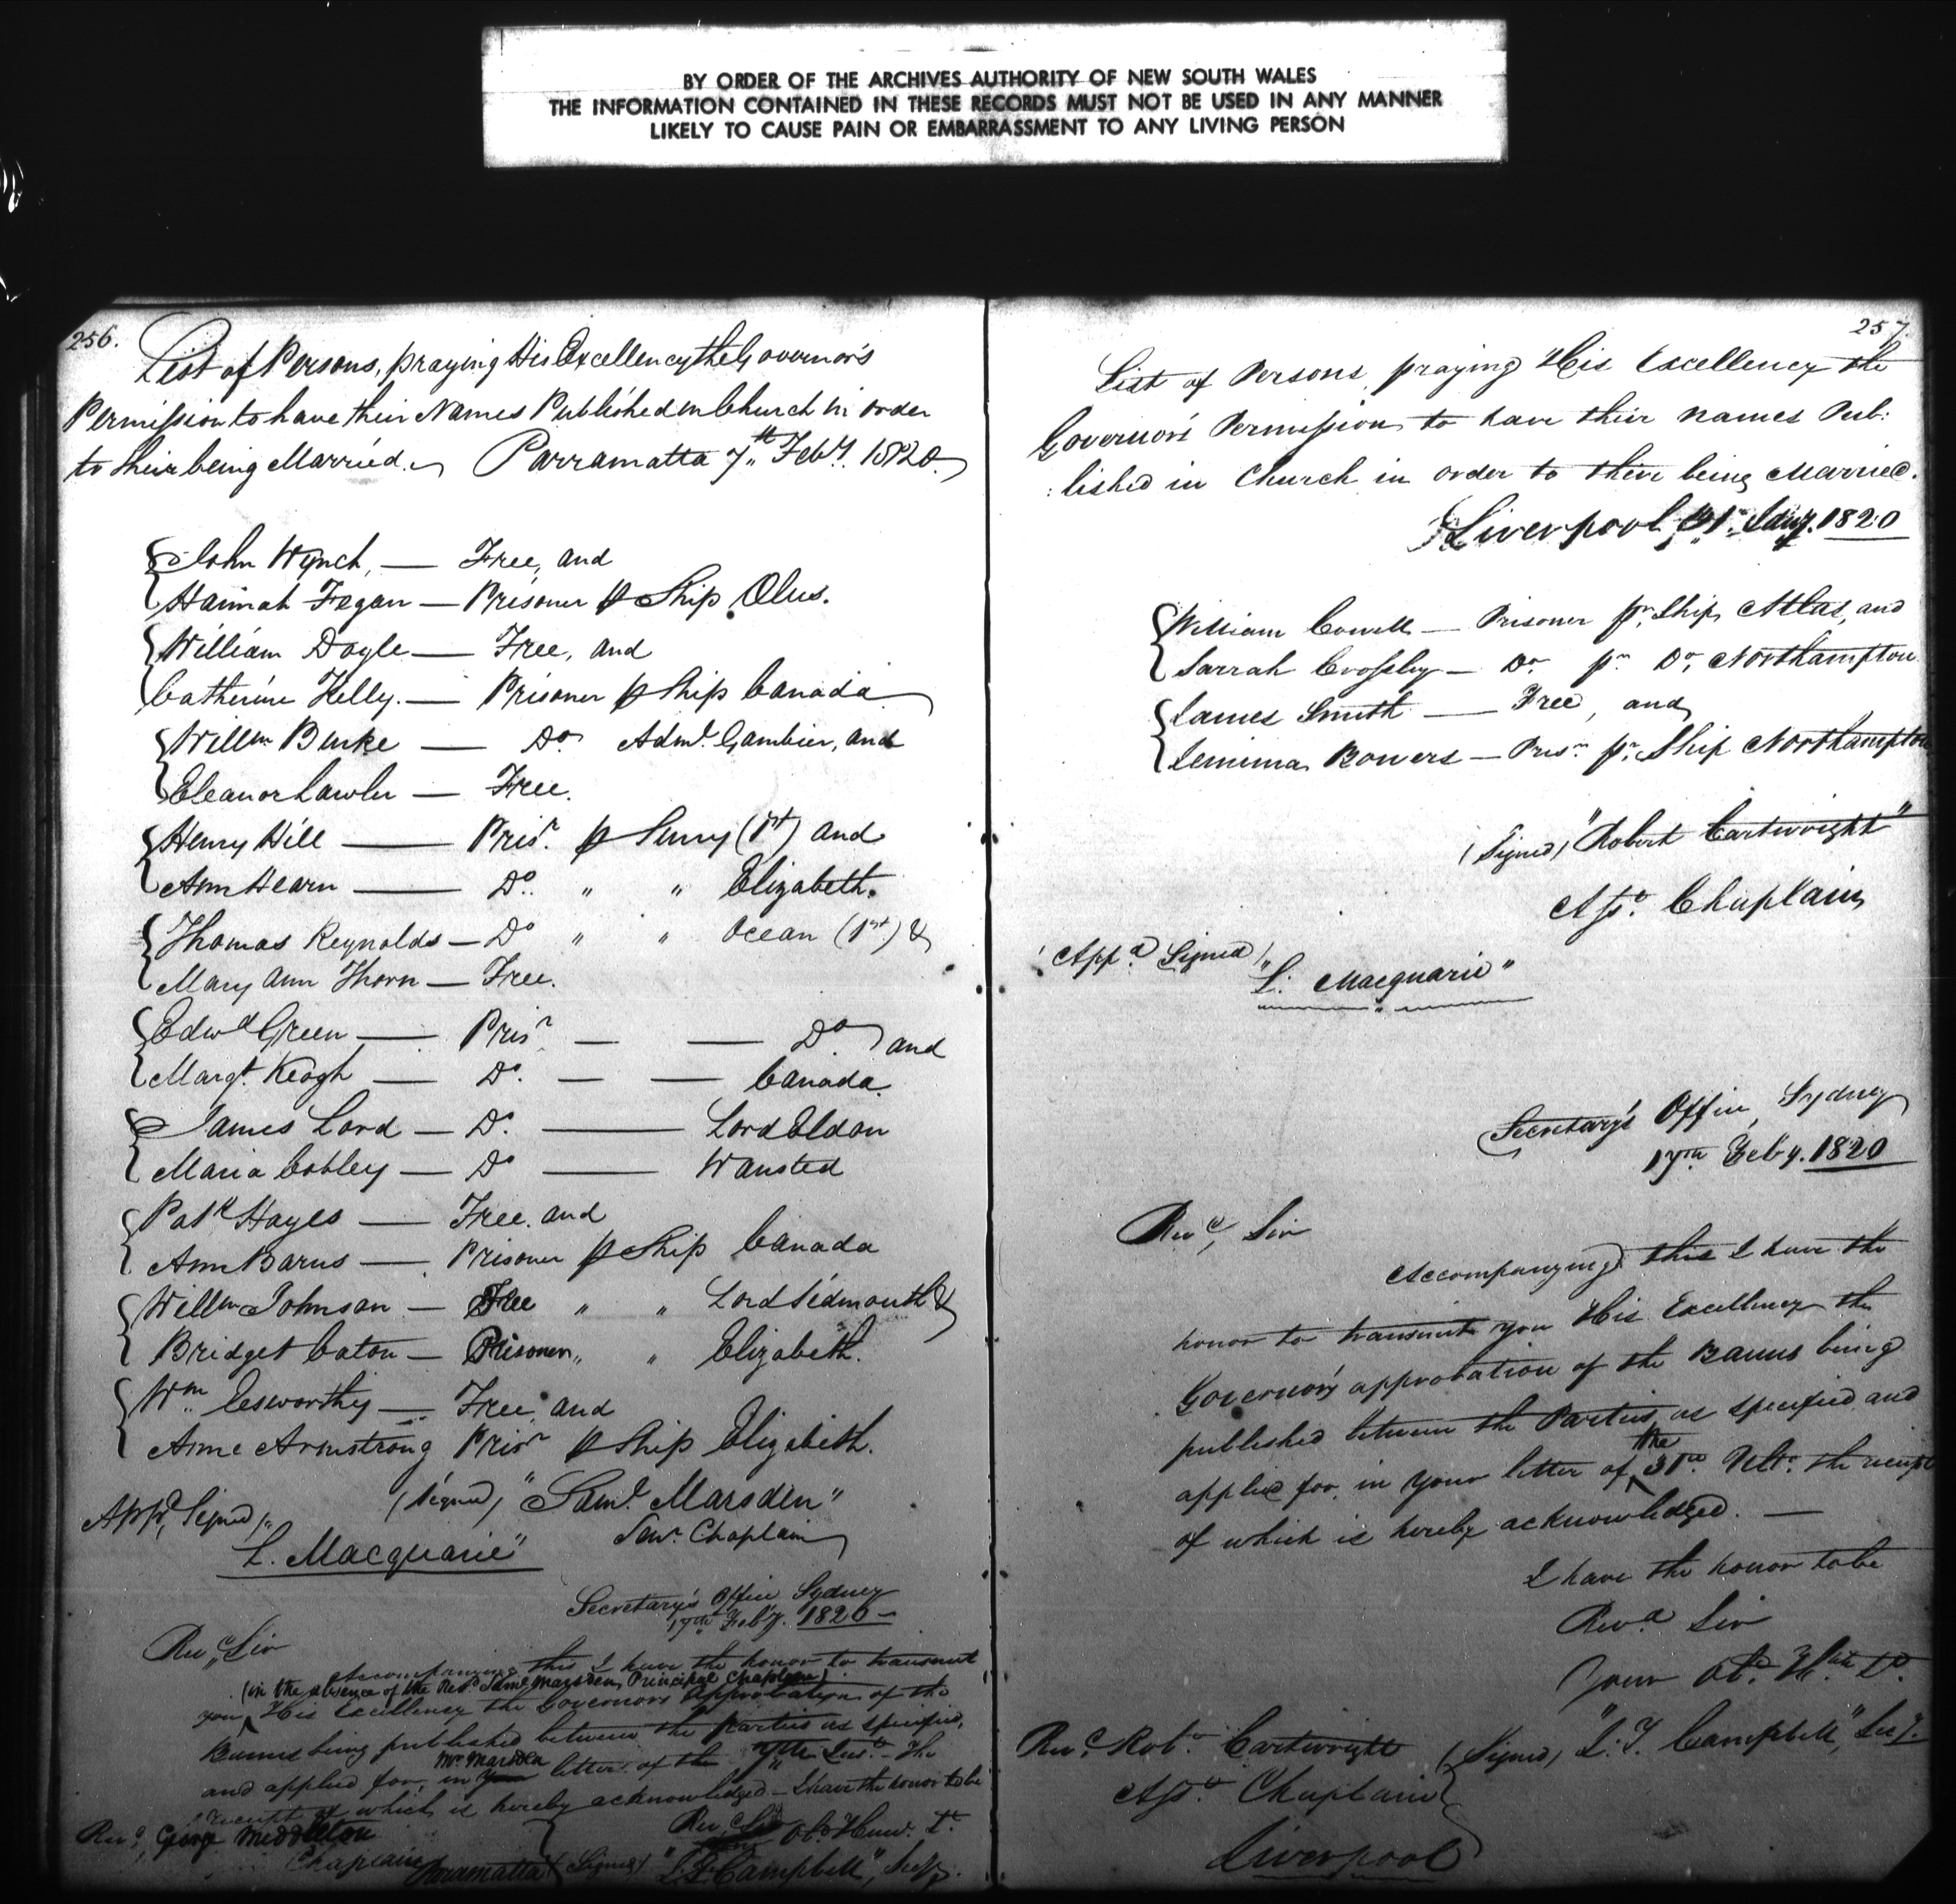 BY ORDER OF THE ARCHIVES AUTHORITY OF NEW SOUTH WALES
THE INFORMATION CONTAINED IN THESE RECORDS MUST NOT BE USED IN ANY MANNER
LIKELY TO CAUSE PAIN OR EMBARRASSMENT TO ANY LIVING PERSON
256.
List of Persons, praying His Excellency the Governor's
Permission to have their Names Published in Church in order
to their being Married. Parramatta 7th Feby. 1820.
John Wynch, — Free, and
Hannah Fegan — Prisoner p Ship
William Doyle — Free, and
Catherine Kelly. — Prisoner p Ship Canada
Willm Burke — Do Adml. Gambier, and
Eleanor Lawler — Free.
Henry Hill — Prisr. p Surry (1st) and
Ann Hearn — Do. " " Elizabeth.
Thomas Reynolds — Do " " Ocean (1st) &
Mary Ann Thorn — Free.
Edwd Green — Prisr — — Do and
Margt. Keogh — Do. — — Canada
James Lord — Do. — Lord Eldon
Maria Cobley — Do — Wansted
Patk Hayes — Free. and
Ann Barns — Prisoner p Ship Canada
Willm Johnson — Free " " Lord Sidmouth &
Bridget Eaton — Prisoner " " Elizabeth.
Wm. Esworthy — Free, and
Anne Armstrong Prisr p Ship Elizabeth.
(Signed) "Saml. Marsden"
Senr. Chaplain
Appd. Signed) "
L. Macquarie"
Secretary's Office Sydney
17th Feby. 1820 —
Revd. Sir
Accompanying this I have the honor to transmit
(in the absence of the Revd Saml Marsden, Principal Chaplain)
you His Excellency the Governor's Approbation of the
Banns being published between the parties as specified,
Mr. Marsden
and applied for, in your letter of the 7th Inst. — The
receipt of which is hereby acknowledged — I have the honor to be
Revd. Sir
Obt. Humb. St.
Revd. George Middleton
Chaplain
Parramatta (Signed) "J. T. Campbell", Secy.
257.
List of Persons, praying His Excellency the
Governor's Permission to have their names Pub:
:lished in Church in order to their being Married.
Liverpool 31st. Jany. 1820
William Cowell — Prisoner pr. Ship Atlas, and
Sarrah Crossley — Do. pr. Do. Northampton
James Smith — Free, and
Jemima Bowers — Prisr. pr. Ship Northampton
(Signed) "Robert Cartwright"
Asst. Chaplain
(Appd. Signed) "
L. Macquarie"
Secretary's Office, Sydney
17th Feby. 1820
Revd, Sir
Accompanying this I have the
honor to transmit you His Excellency the
Governor's approbation of the Banns being
published between the Parties, as specified, and
the
applied for, in your letter of 31st. Ulto. the receipt
of which is hereby acknowledged. —
I have the honor to be
Revd Sir
Your Ob. Hble St.
(Signed) "J. T. Campbell", Secy.
Revd. Robt. Cartwright
Asst. Chaplain
Liverpool